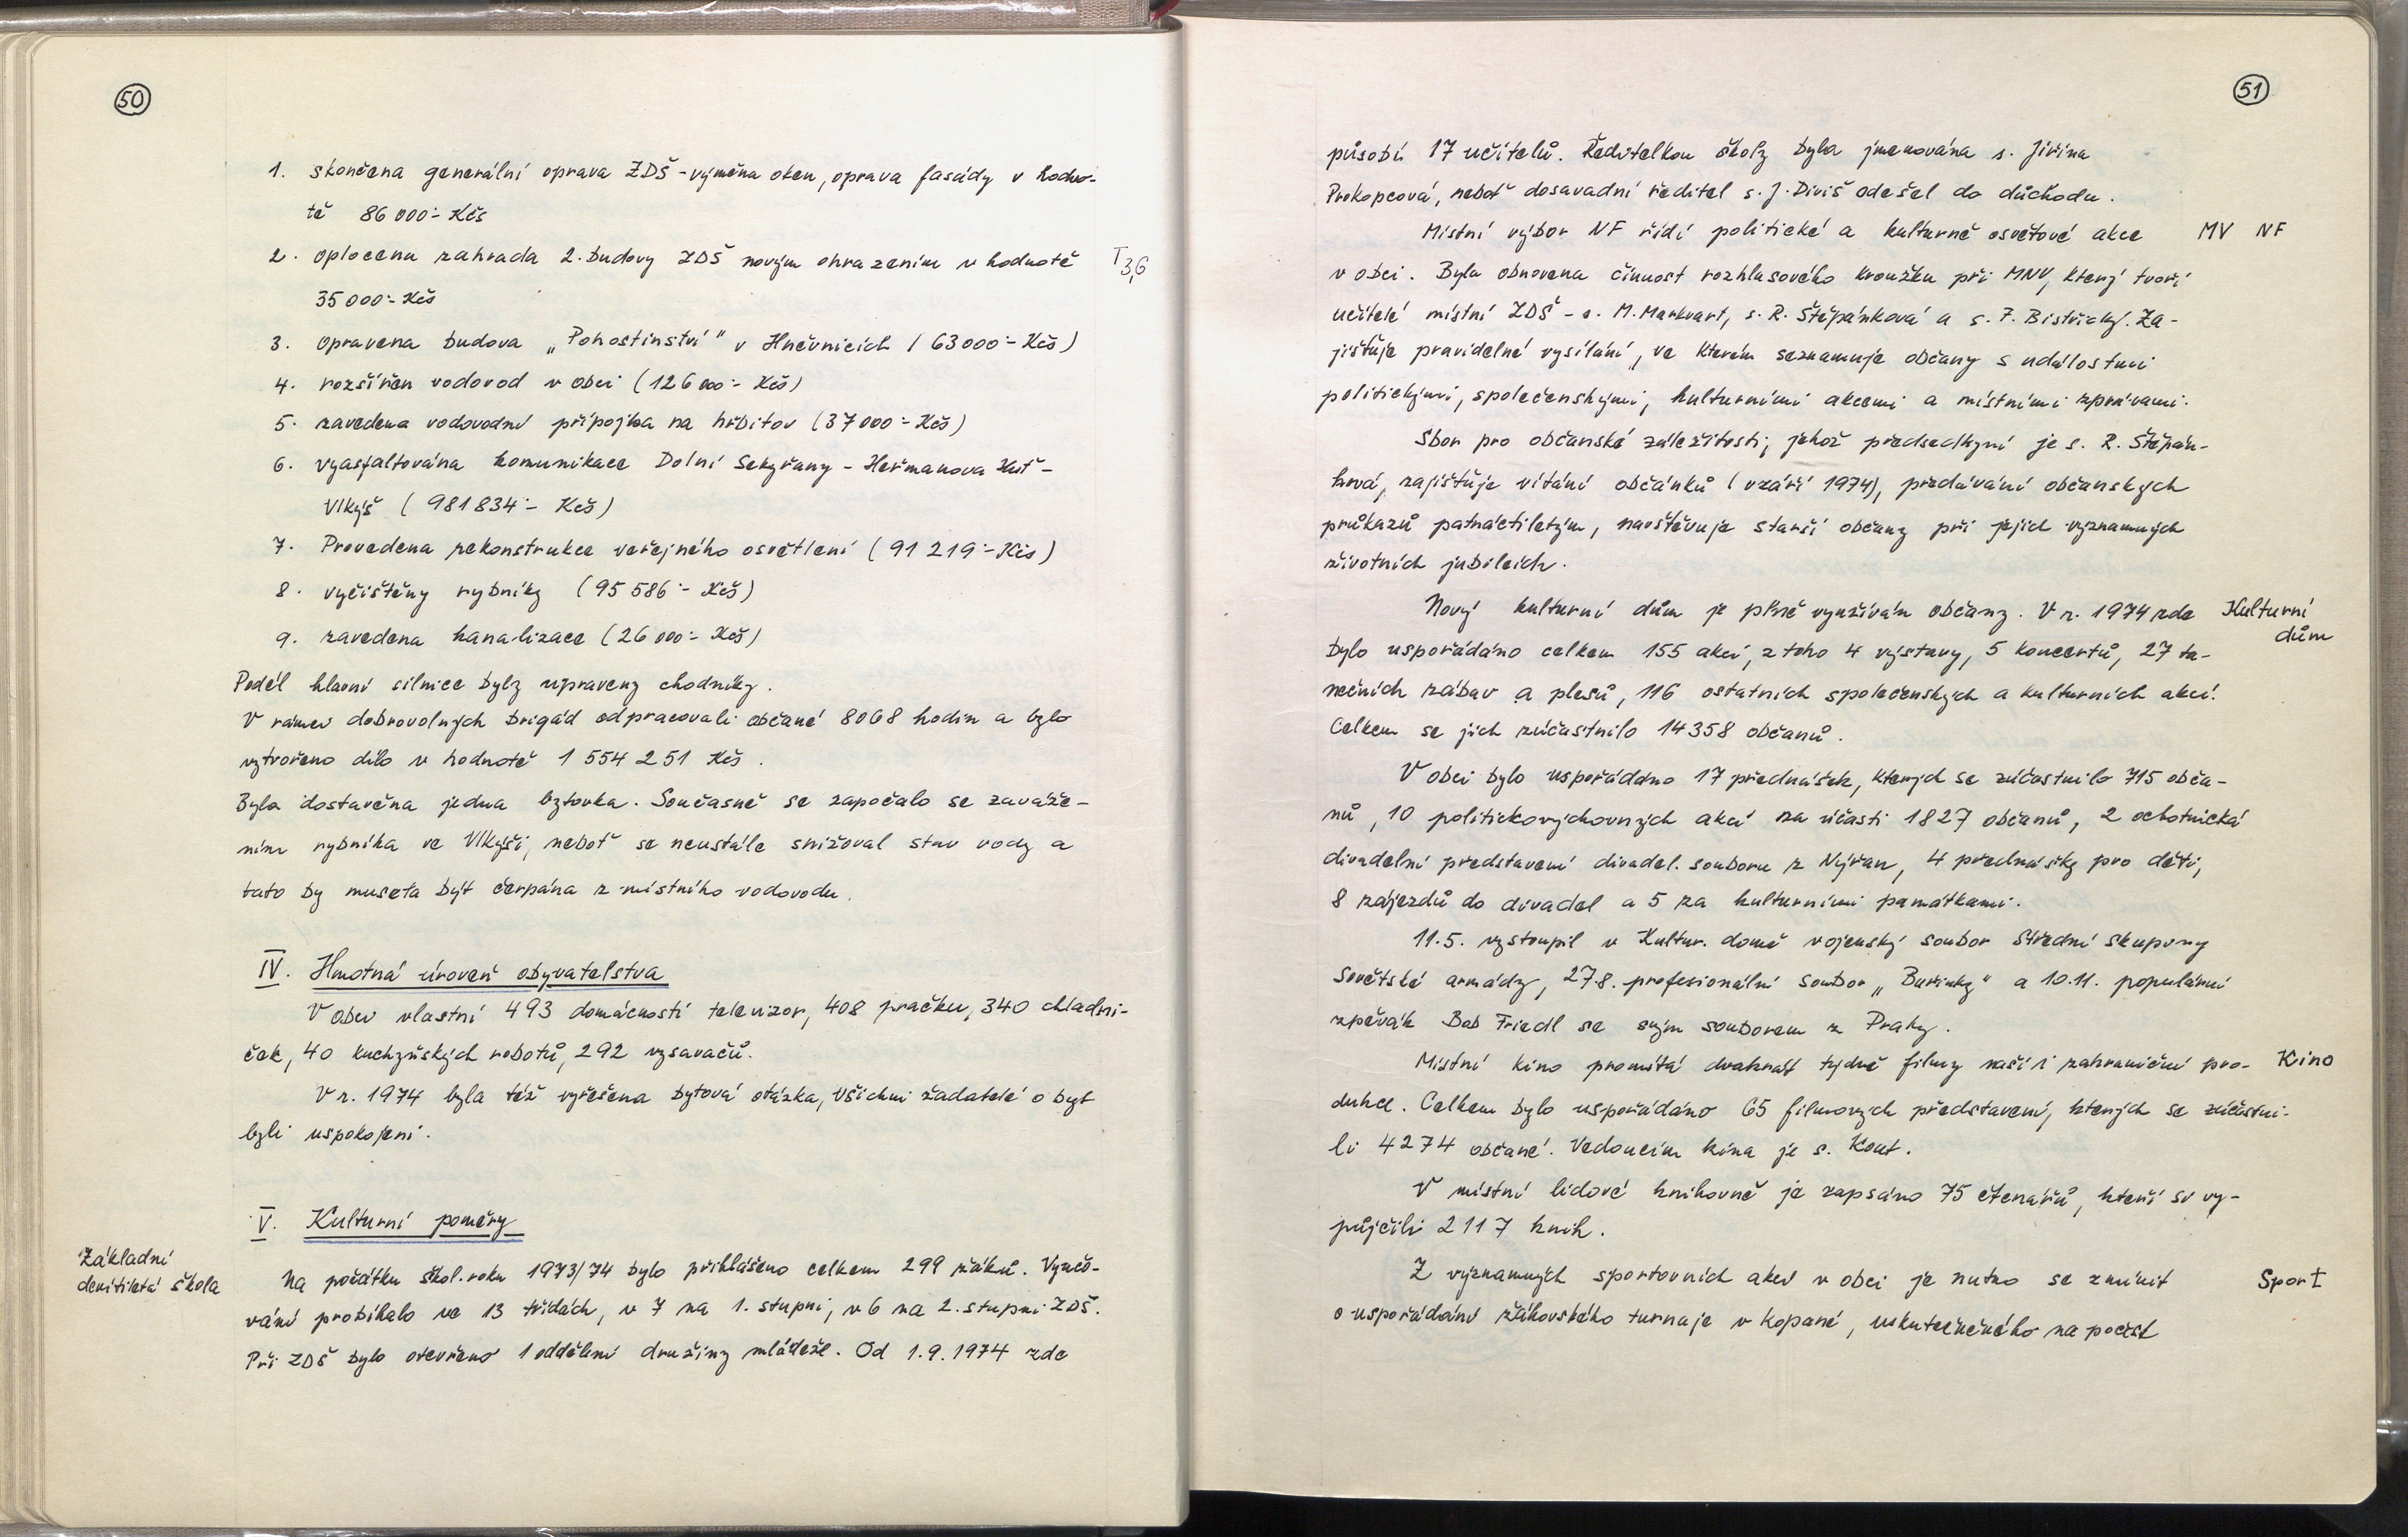 50
1. skončena generální oprava ZDŠ - výměna oken, oprava fasády v hodno-
tě 86 000.- Kčs
2. oplocena zahrada 2. budovy ZDŠ novým ohrazením v hodnotě
T 3,6
35 000.- Kčs
3. opravena budova „Pohostinství" v Hněvnicích (63 000.- Kčs)
4. rozšířen vodovod v obci (126 000.- Kčs)
5. zavedena vodovodní přípojka na hřbitov (37 000.- Kčs)
6. vyasfaltována komunikace Dolní Sekyřany - Heřmanova Huť -
Vlkýš (981 834.- Kčs)
7. Provedena rekonstrukce veřejného osvětlení (91 219.- Kčs)
8. vyčištěny rybníky (95 586.- Kčs)
9. zavedena kanalizace (26 000.- Kčs)
Podél hlavní silnice byly upraveny chodníky.
V rámci dobrovolných brigád odpracovali občané 8068 hodin a bylo
vytvořeno dílo v hodnotě 1 554 251 Kčs.
Byla dostavěna jedna bytovka. Současně se započalo se zaváže-
ním rybníka ve Vlkýši, neboť se neustále snižoval stav vody a
tato by museta být čerpána z místního vodovodu.
IV. Hmotná úroveň obyvatelstva
V obci vlastní 493 domácností televizor, 408 pračku, 340 chladni-
ček, 40 kuchyňských robotů, 292 vysavačů.
V r. 1974 byla též vyřešena bytová otázka, všichni žadatelé o byt
byli uspokojeni.
V. Kulturní poměry
Základní
devítiletá škola
Na počátku škol. roku 1973/74 bylo přihlášeno celkem 299 žáků. Vyučo-
vání probíhalo ve 13 třídách, v 7 na 1. stupni, v 6 na 2. stupni ZDŠ.
Při ZDŠ bylo otevřeno 1 oddělení družiny mládeže. Od 1.9.1974 zde
51
působí 17 učitelů. Ředitelkou školy byla jmenována s. Jiřina
Prokopcová, neboť dosavadní ředitel s. J. Diviš odešel do důchodu.
Místní výbor NF řídí politické a kulturně osvětové akce
MV NF
v obci. Byla obnovena činnost rozhlasového kroužku při MNV, který tvoří
učitelé místní ZDŠ - s. M. Markvart, s. R. Štěpánková a s. F. Bistřický. Za-
jišťuje pravidelné vysílání, ve kterém seznamuje občany s událostmi
politickými, společenskými, kulturními akcemi a místními zprávami.
Sbor pro občanské záležitosti, jehož předsedkyní je s. R. Štěpán-
ková, zajišťuje vítání občánků (v září 1974), předávání občanských
průkazů patnáctiletým, navštěvuje starší občany při jejich významných
životních jubileích.
Nový kulturní dům je plně využíván občany. V r. 1974 zde
Kulturní
dům
bylo uspořádáno celkem 155 akcí, z toho 4 výstavy, 5 koncertů, 27 ta-
nečních zábav a plesů, 116 ostatních společenských a kulturních akcí.
Celkem se jich zúčastnilo 14 358 občanů.
V obci bylo uspořádáno 17 přednášek, kterých se zúčastnilo 715 obča-
nů, 10 politickovýchovných akcí za účasti 1827 občanů, 2 ochotnická
divadelní představení divadel. souboru z Nýřan, 4 přednášky pro děti,
8 zájezdů do divadel a 5 za kulturními památkami.
11.5. vystoupil v Kultur. domě vojenský soubor Střední skupiny
Sovětské armády, 27.8. profesionální soubor „Buřinky" a 10.11. populární
zpěvák Bob Friedl se svým souborem z Prahy.
Místní kino promítá dvakrát týdně filmy naší i zahraniční pro-
Kino
dukce. Celkem bylo uspořádáno 65 filmových představení, kterých se zúčastni-
li 4274 občané. Vedoucím kina je s. Kout.
V místní lidové knihovně je zapsáno 75 čtenářů, kteří si vy-
půjčili 2117 knih.
Z významných sportovních akcí v obci je nutno se zmínit
Sport
o uspořádání žákovského turnaje v kopané, uskutečněného na počest